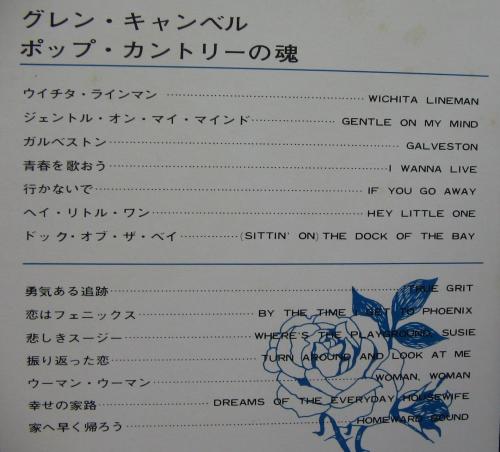 グレン・キャンベル
ポップ・カントリーの魂
ウイチタ・ラインマン WICHITA LINEMAN
ジェントル・オン・マイ・マインド GENTLE ON MY MIND
ガルベストン GALVESTON
青春を歌おう I WANNA LIVE
行かないで IF YOU GO AWAY
ヘイ・リトル・ワン HEY LITTLE ONE
ドック・オブ・ザ・ベイ (SITTIN' ON) THE DOCK OF THE BAY
勇気ある追跡 TRUE GRIT
恋はフェニックス BY THE TIME I GET TO PHOENIX
悲しきスージー WHERE'S THE PLAYGROUND, SUSIE
振り返った恋 TURN AROUND AND LOOK AT ME
ウーマン・ウーマン WOMAN, WOMAN
幸せの家路 DREAMS OF THE EVERYDAY HOUSEWIFE
家へ早く帰ろう HOMEWARD BOUND